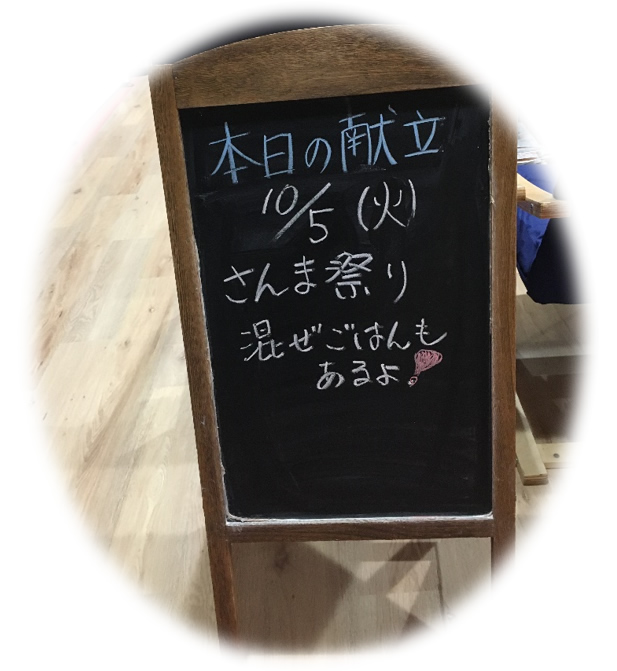 本日の献立
10/5(火)
さんま祭り
混ぜごはんも
あるよ!